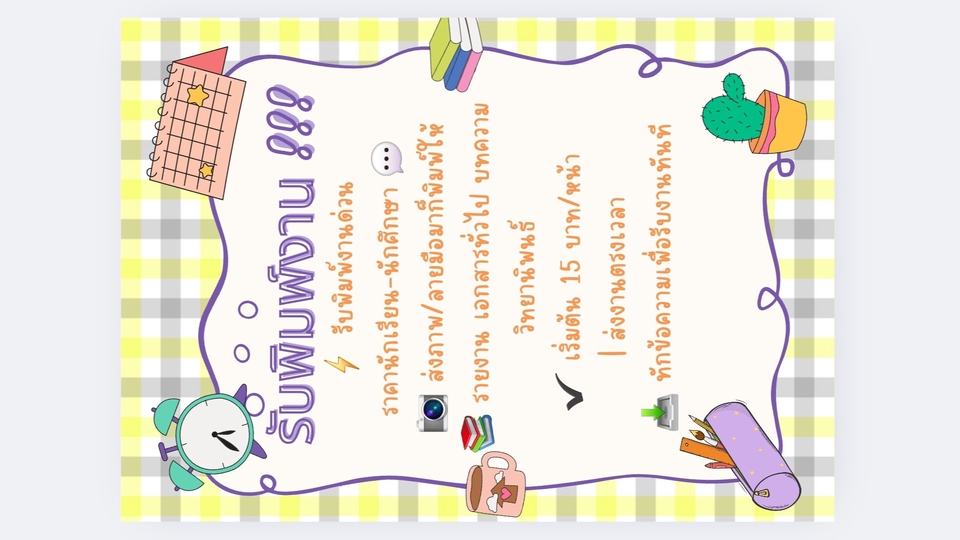 รับพิมพ์งาน !!!
⚡ รับพิมพ์งานด่วน
ราคานักเรียน-นักศึกษา 💬
📷 ส่งภาพ/ลายมือมาก็พิมพ์ให้
📚 รายงาน เอกสารทั่วไป บทความ
วิทยานิพนธ์
✔ เริ่มต้น 15 บาท/หน้า
| ส่งงานตรงเวลา
📥 ทักข้อความเพื่อรับงานทันที